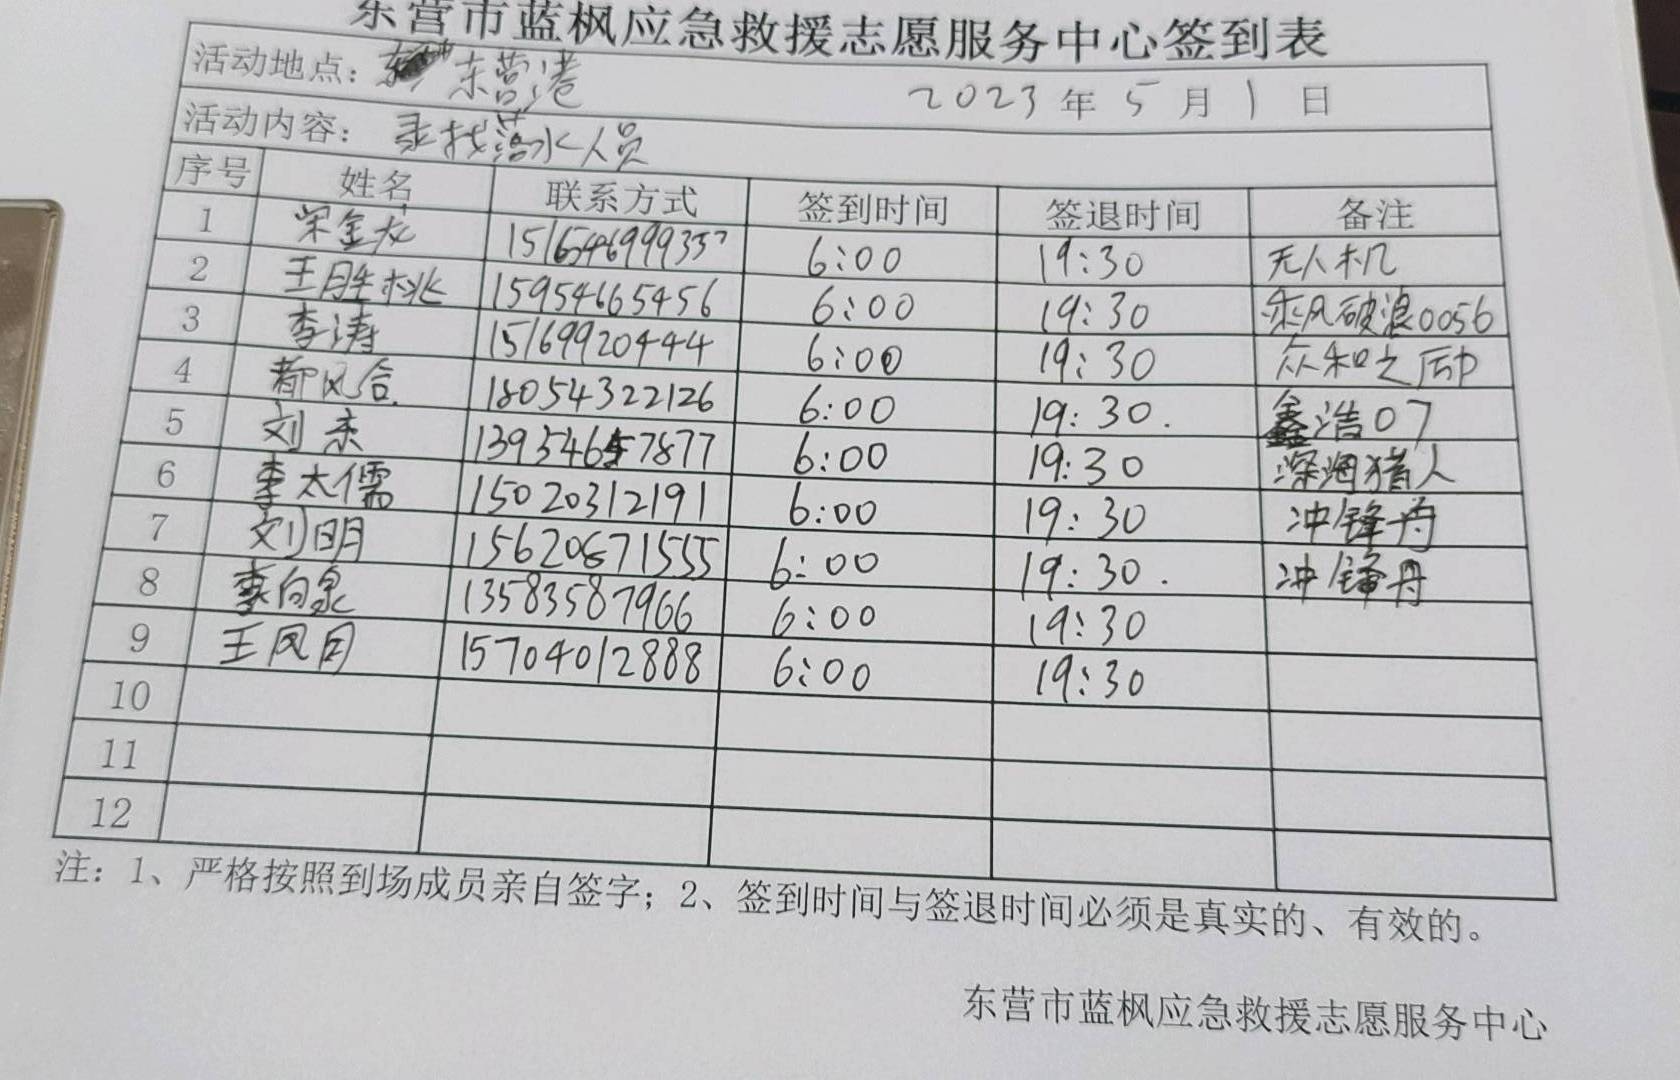 东营市蓝枫应急救援志愿服务中心签到表
活动地点: 东营港 2023年5月1日
活动内容: 寻找落水人员
序号 姓名 联系方式 签到时间 签退时间 备注
1 宋金龙 6:00 19:30 无人机
2 王胜桃 15954665456 6:00 19:30 乘风破浪0056
3 李涛 15169920444 6:00 19:30 众和之励
4 18054322126 6:00 19:30. 鑫浩07
5 刘杰 13954657877 6:00 19:30 深海猎人
6 李太儒 15020312191 6:00 19:30 冲锋舟
7 刘明 15620671555 6:00 19:30. 冲锋舟
8 李向泉 13583587966 6:00 19:30
9 王风 15704012888 6:00 19:30
10
11
12
注: 1、严格按照到场成员亲自签字; 2、签到时间与签退时间必须是真实的、有效的。
东营市蓝枫应急救援志愿服务中心